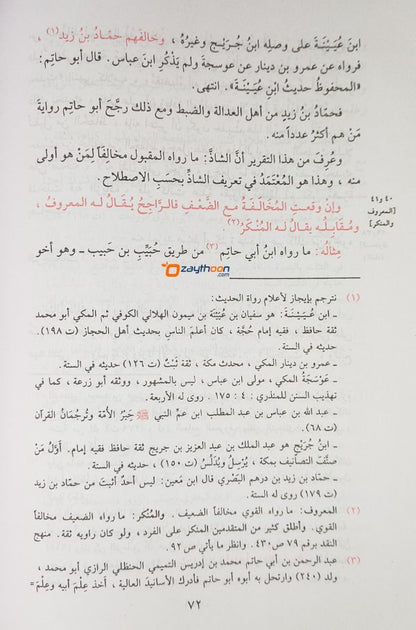 ابنَ عُيَيْنَةَ على وصلِه ابنُ جُرَيْجٍ وغيرُهُ ، وخالفَهم حمّادُ بنُ زيدٍ(١) ،
فرواه عن عمرو بن دينار عن عوسجةَ ولم يَذْكُرِ ابنَ عباس. قال أبو حاتِم:
«المحفوظُ حديثُ ابْنِ عُيَيْنَةَ». انتهى.
فحمّادُ بنُ زيدٍ من أهل العدالة والضبط ومع ذلك رجَّحَ أبو حاتِم روايةَ
مَنْ هم أكثرُ عدداً منه.
وعُرِفَ من هذا التقرير أنَّ الشاذَّ: ما رواه المقبول مخالفاً لِمَنْ هو أولى
منه ، وهذا هو المُعْتَمَدُ في تعريف الشاذِّ بحسَبِ الاصطلاح.
٤٠ و٤١
[المعروف
والمنكر]
وإنْ وقعتِ المُخَالَفَةُ مع الضَّعْفِ فالرَّاجِحُ يُقَالُ له المعروفُ ،
ومُقَابِلُه يقالُ له المُنْكَرُ(٢).
مِثالُهُ: ما رواه ابنُ أبي حاتِم(٣) من طريق حُبَيِّبِ بن حَبيب ـ وهو أخو
Ozaythoon
.com
(١) نترجم بإيجاز لأعلام رواة الحديث:
ـ ابن عُيَيْنَةَ: هو سفيان بن عُيَيْنَة بن ميمون الهلالي الكوفي ثم المكي أبو محمد
ثقة حافظ ، فقيه إمام حُجَّة ، كان أعلمَ الناس بحديث أهل الحجاز (ت ١٩٨).
حديثه في الستة.
ـ عمرو بن دينار المكي ، محدث مكة ، ثقة ثَبْتٌ (ت ١٢٦) حديثه في الستة.
ـ عَوْسَجَةُ المكي ، مولى ابن عباس ، ليس بالمشهور ، ووثقه أبو زرعة ، كما في
تهذيب السنن للمنذري: ٤ : ١٧٥ . روى له الأربعة.
ـ عبد الله بن عباس بن عبد المطلب ابن عم النبي ﷺ حَبْرُ الأُمَّة وتُرجُمَانُ القرآن
(ت ٦٨).
ـ ابنُ جُرَيْجٍ هو عبد الملك بن عبد العزيز بن جريج ثقة حافظ فقيه إمام. أَوَّلُ مَنْ
صنَّفَ التصانيف بمكة ، يُرْسِلُ ويُدَلِّسُ (ت ١٥٠) ، حديثه في الستة.
ـ حمّاد بن زيد بن درهم البَصْري قال ابن مَعين: ليس أحدٌ أثبتَ من حمّاد بن زيد
(ت ١٧٩) روى له الستة.
(٢) المعروف: ما رواه القوي مخالفاً الضعيف . والمُنْكر: ما رواه الضعيف مخالفاً
القوي. وأطلق كثير من المتقدمين المنكر على الفرد ، ولو كان راويه ثقة. منهج
النقد برقم ٧٩ ص٤٣٠. وانظر ما يأتي ص ٩٢.
(٣) عبد الرحمن بن أبي حاتم محمد بن إدريس التميمي الحنظلي الرازي أبو محمد ،
ولد (٢٤٠) وارتحل به أبوه أبو حاتم فأدرك الأسانيد العالية ، أخذ عِلْمَ أبيه وعِلْمَ =
٧٢